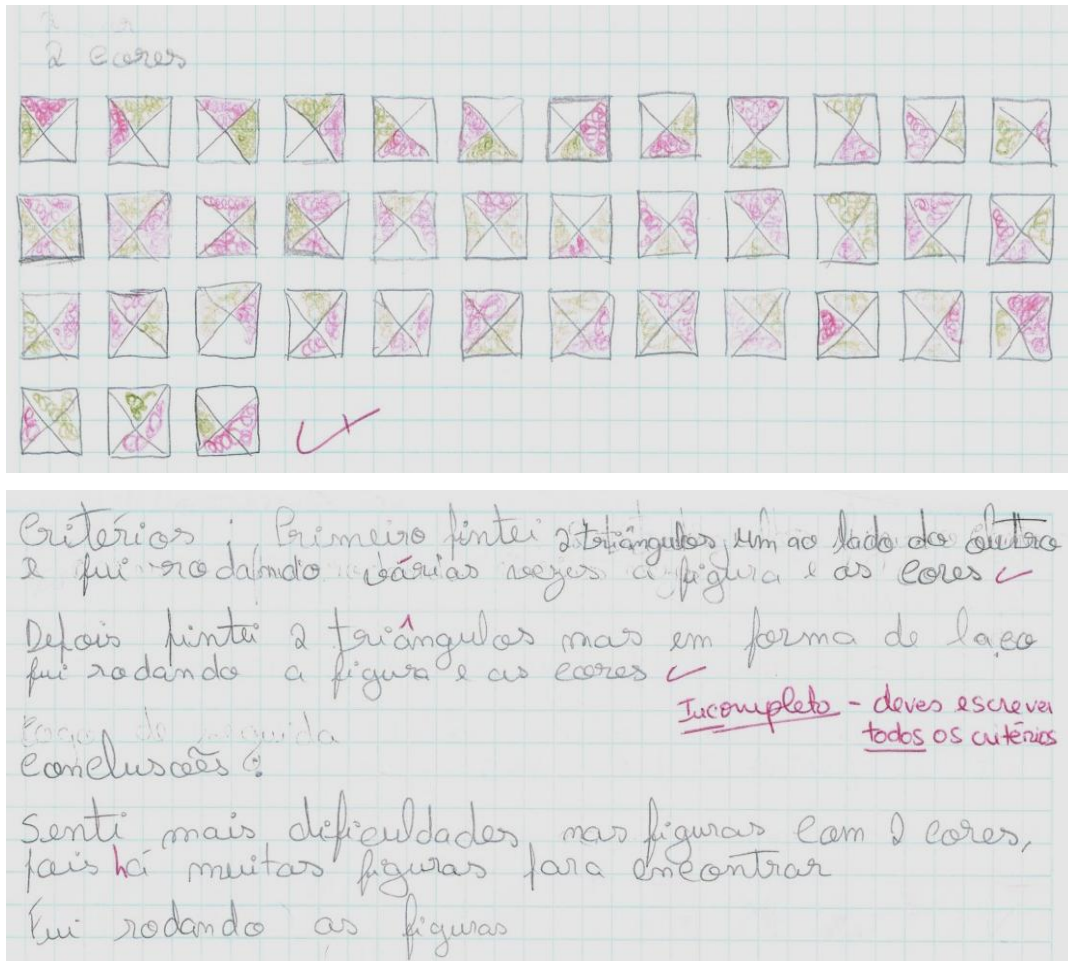 2 cores
Critérios : Primeiro pintei 2 triângulos, um ao lado do outro
e fui rodando várias vezes a figura e as cores
Depois pintei 2 triângulos mas em forma de laço
fui rodando a figura e as cores
Incompleto - deves escrever
todos os critérios
Logo de seguida
Conclusões :
Senti mais dificuldades nas figuras com 2 cores,
pois há muitas figuras para encontrar
Fui rodando as figuras